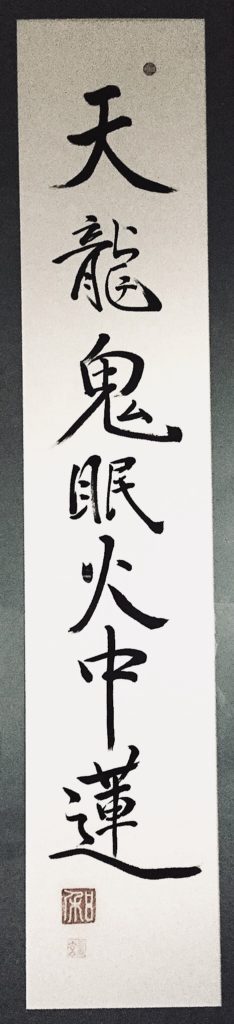 天龍鬼眠火中蓮